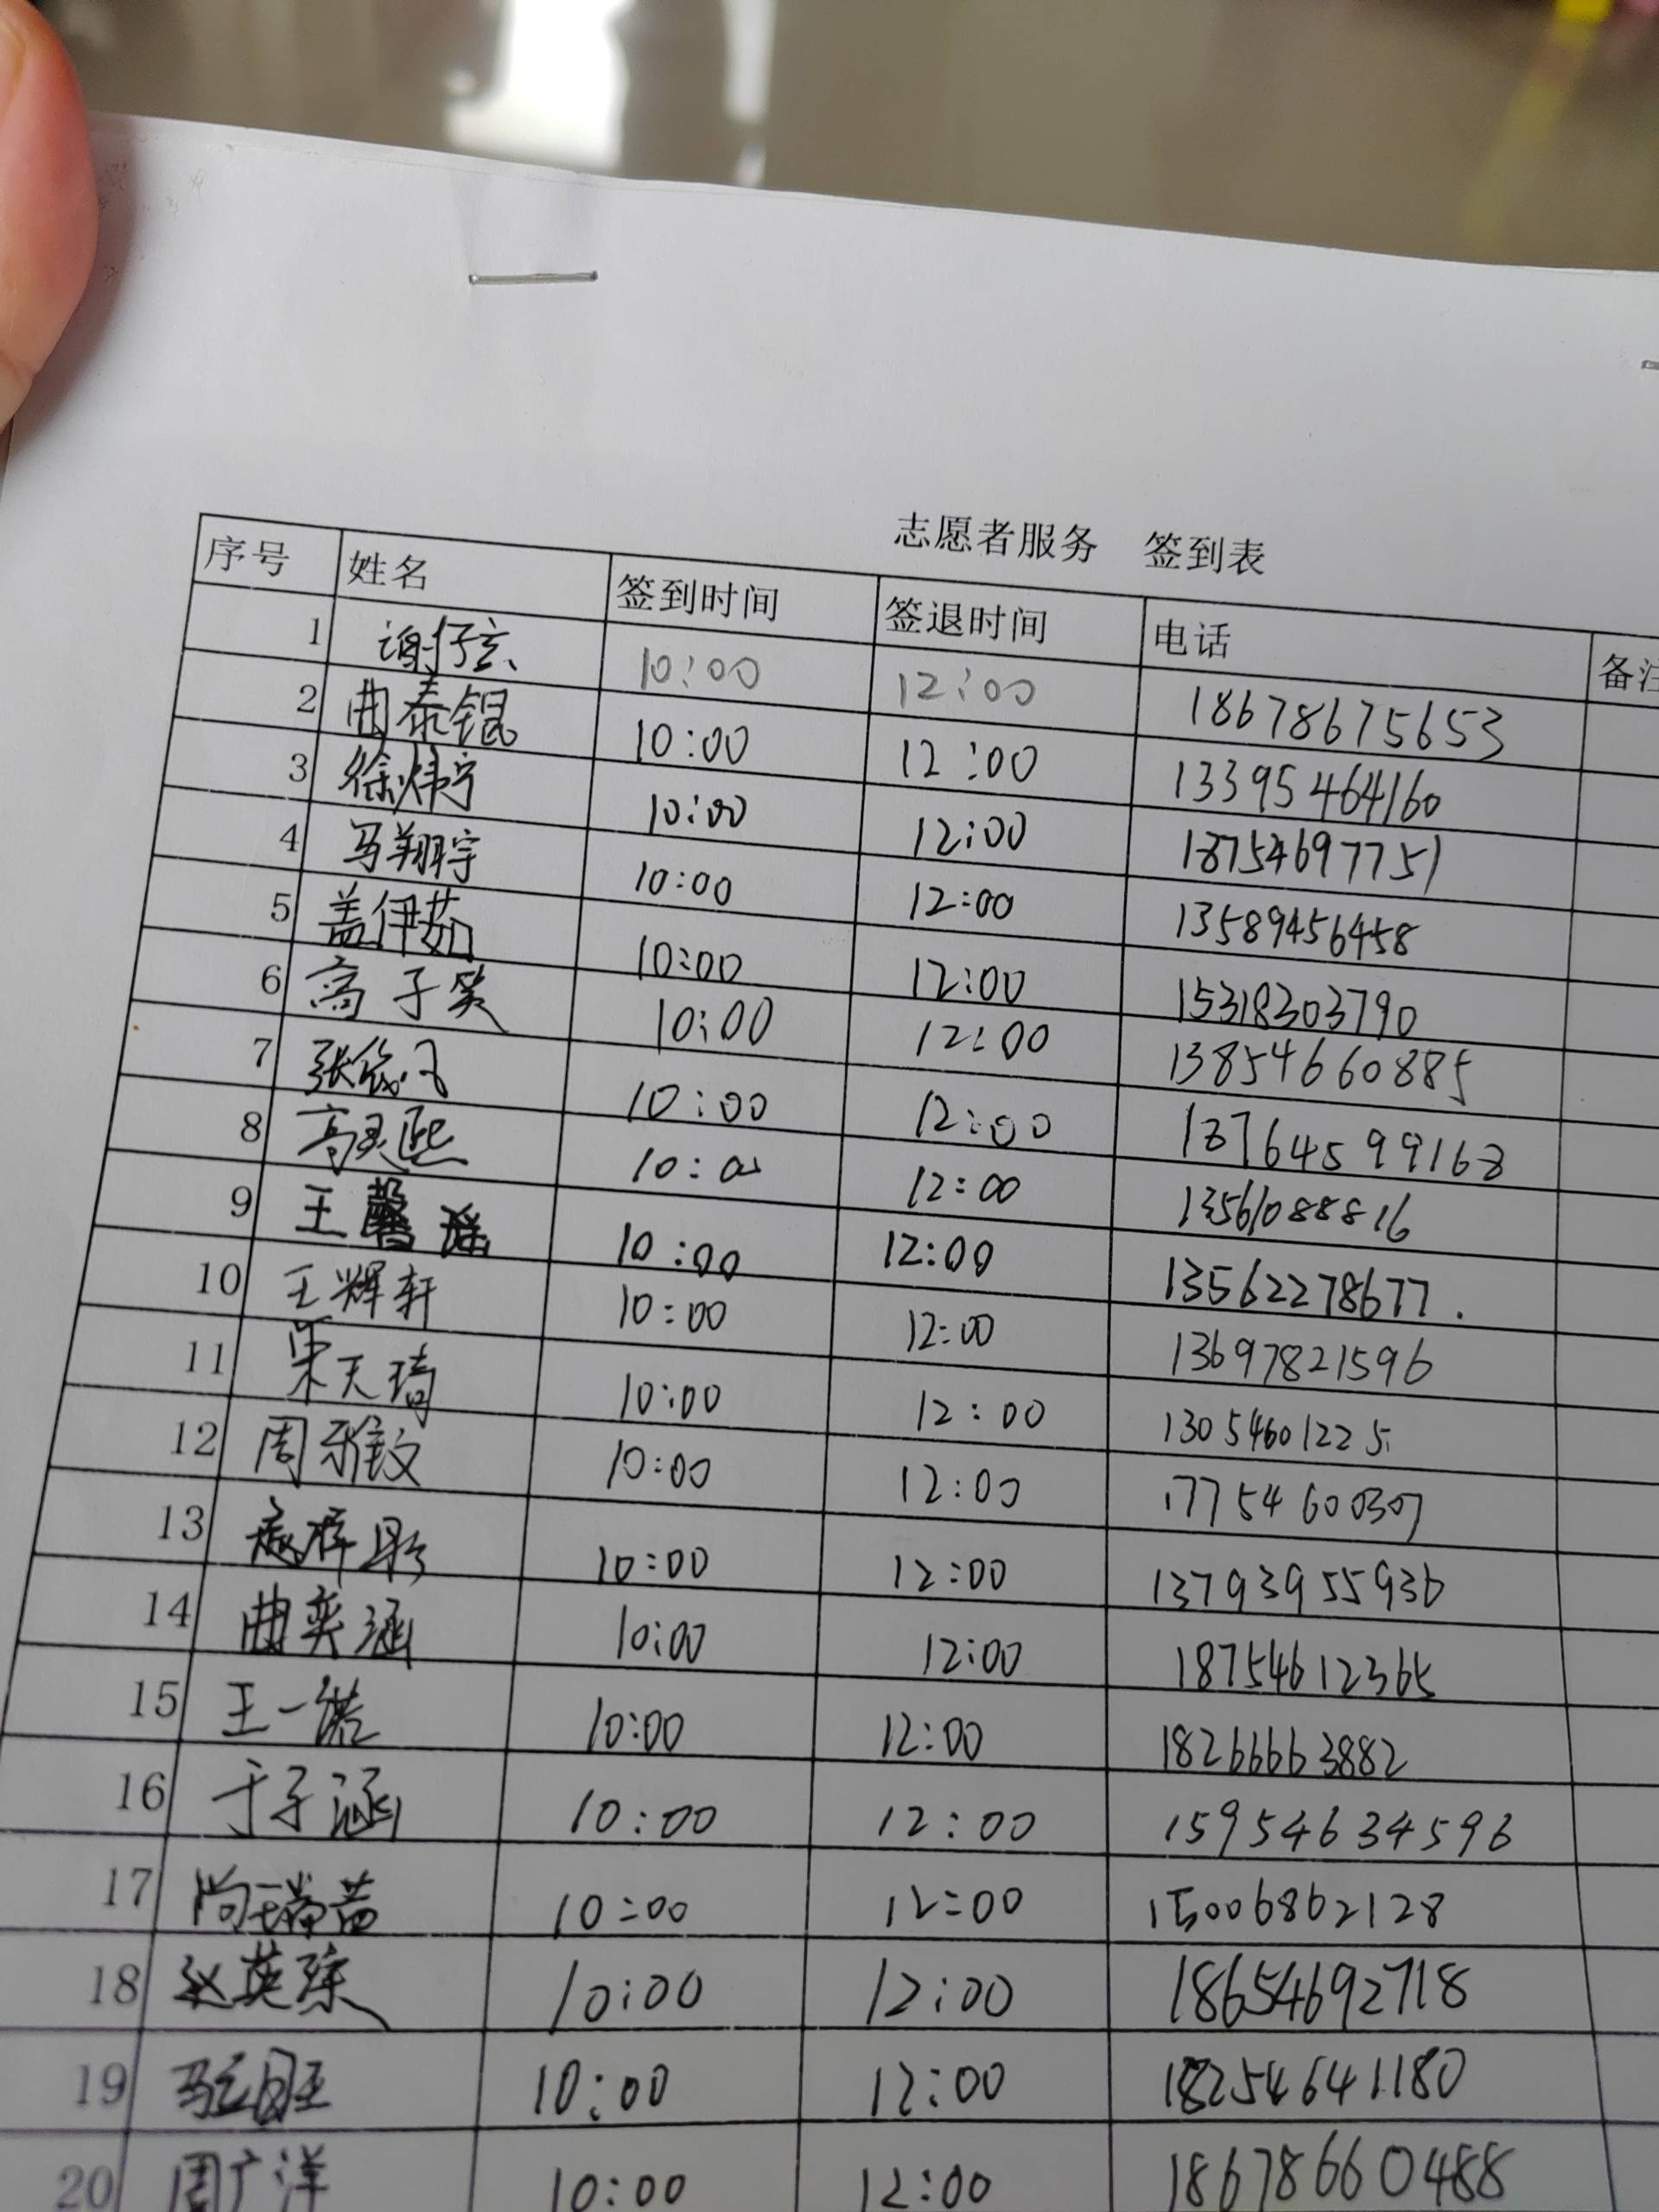 志愿者服务 签到表
序号 姓名 签到时间 签退时间 电话 备注
1 谢仔玄 10:00 12:00 18678675653
2 曲泰锟 10:00 12:00 13395464160
3 徐炜宁 10:00 12:00 18754697751
4 马翔宇 10:00 12:00 13589456458
5 盖伊茹 10:00 12:00 15318303790
6 高子笑 10:00 12:00 13854660885
7 10:00 12:00
8 高灵熙 10:00 12:00 13561088816
9 王馨瑶 10:00 12:00 13562278677.
10 王辉轩 10:00 12:00 13697821596
11 宋天琦 10:00 12:00 13054601225
12 周雅纹 10:00 12:00 17754600307
13 10:00 12:00 13793955936
14 曲奕涵 10:00 12:00 18754612365
15 王一诺 10:00 12:00 18266663882
16 于子涵 10:00 12:00 15954634596
17 尚瑞益 10:00 12:00 15006862128
18 赵英琮 10:00 12:00 18654692718
19 10:00 12:00 18254641180
20 周广洋 10:00 12:00 18678660488